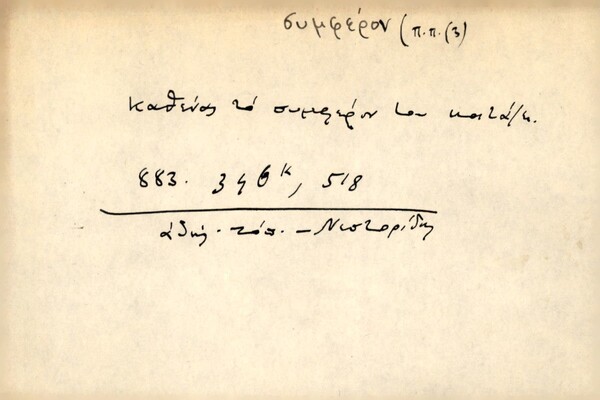 συμφέρον (π.π. (3)
Καθένας τό συμφέρον του κοιτάζει.
883. 346 κ, 518
άδήλ. τόπ. – Νεστορίδης